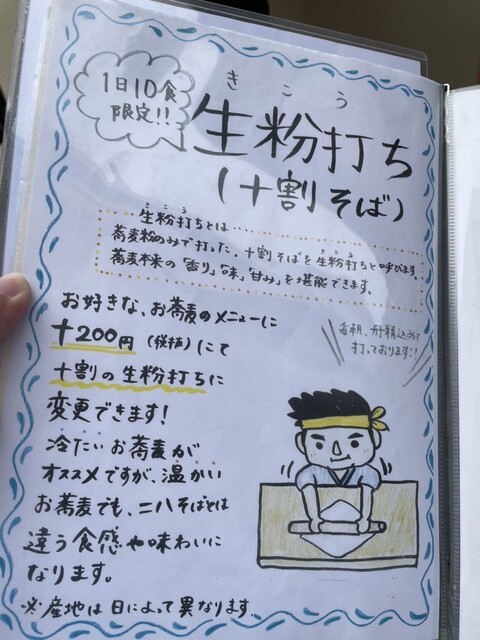 1日10食
限定!!
きこう
生粉打ち
(十割そば)
きこう
生粉打ちとは……
きこう
蕎麦粉のみで打った、十割そばを生粉打ちと呼びます。
蕎麦本来の「香り」「味」「甘み」を堪能できます。
お好きな、お蕎麦のメニューに
+200円(税抜)にて
十割の生粉打ちに
変更できます!
毎朝、丹精込めて
打っております!!
冷たいお蕎麦が
オススメですが、温かい
お蕎麦でも、二八そばとは
違う食感や味わいに
なります。
※産地は日によって異なります。